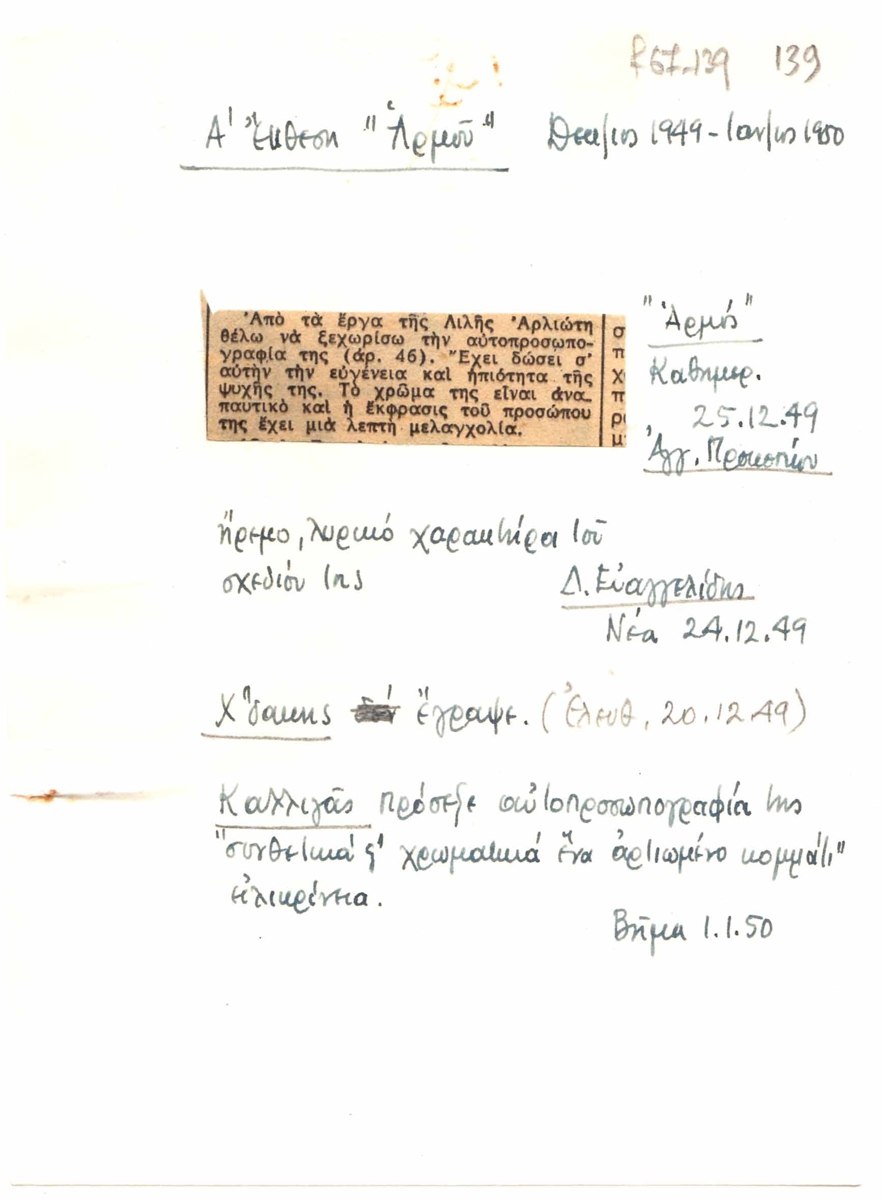 F67-139 139
Α' Ἔκθεση "Ἁρμοῦ" Δεκ/ιος 1949 - Ιαν/ιος 1950
Ἀπὸ τὰ ἔργα τῆς Λιλῆς Ἀρλιώτη
θέλω νὰ ξεχωρίσω τὴν αὐτοπροσωπο-
γραφία της (ἀρ. 46). Ἔχει δώσει σ'
αὐτὴν τὴν εὐγένεια καὶ ἠπιότητα τῆς
ψυχῆς της. Τὸ χρῶμα της εἶναι ἀνα-
παυτικὸ καὶ ἡ ἔκφρασις τοῦ προσώπου
της ἔχει μιὰ λεπτὴ μελαγχολία.
"Ἁρμός"
Καθημερ.
, 25.12.49
Ἀγγ. Προκοπίου
ἤρεμο, λυρικό χαρακτήρα τοῦ
σχεδίου της
Δ. Εὐαγγελίδης
Νέα 24.12.49
Χ"δακης ἔγραψε. (Ἐλευθ, 20.12.49)
Καλλιγᾶς πρόσεξε αὐτοπροσωπογραφία της
"συνθετικά ϛ' χρωματικά ἕνα ἀρτιωμένο κομμάτι"
εἰλικρίνεια.
Βῆμα 1.1.50